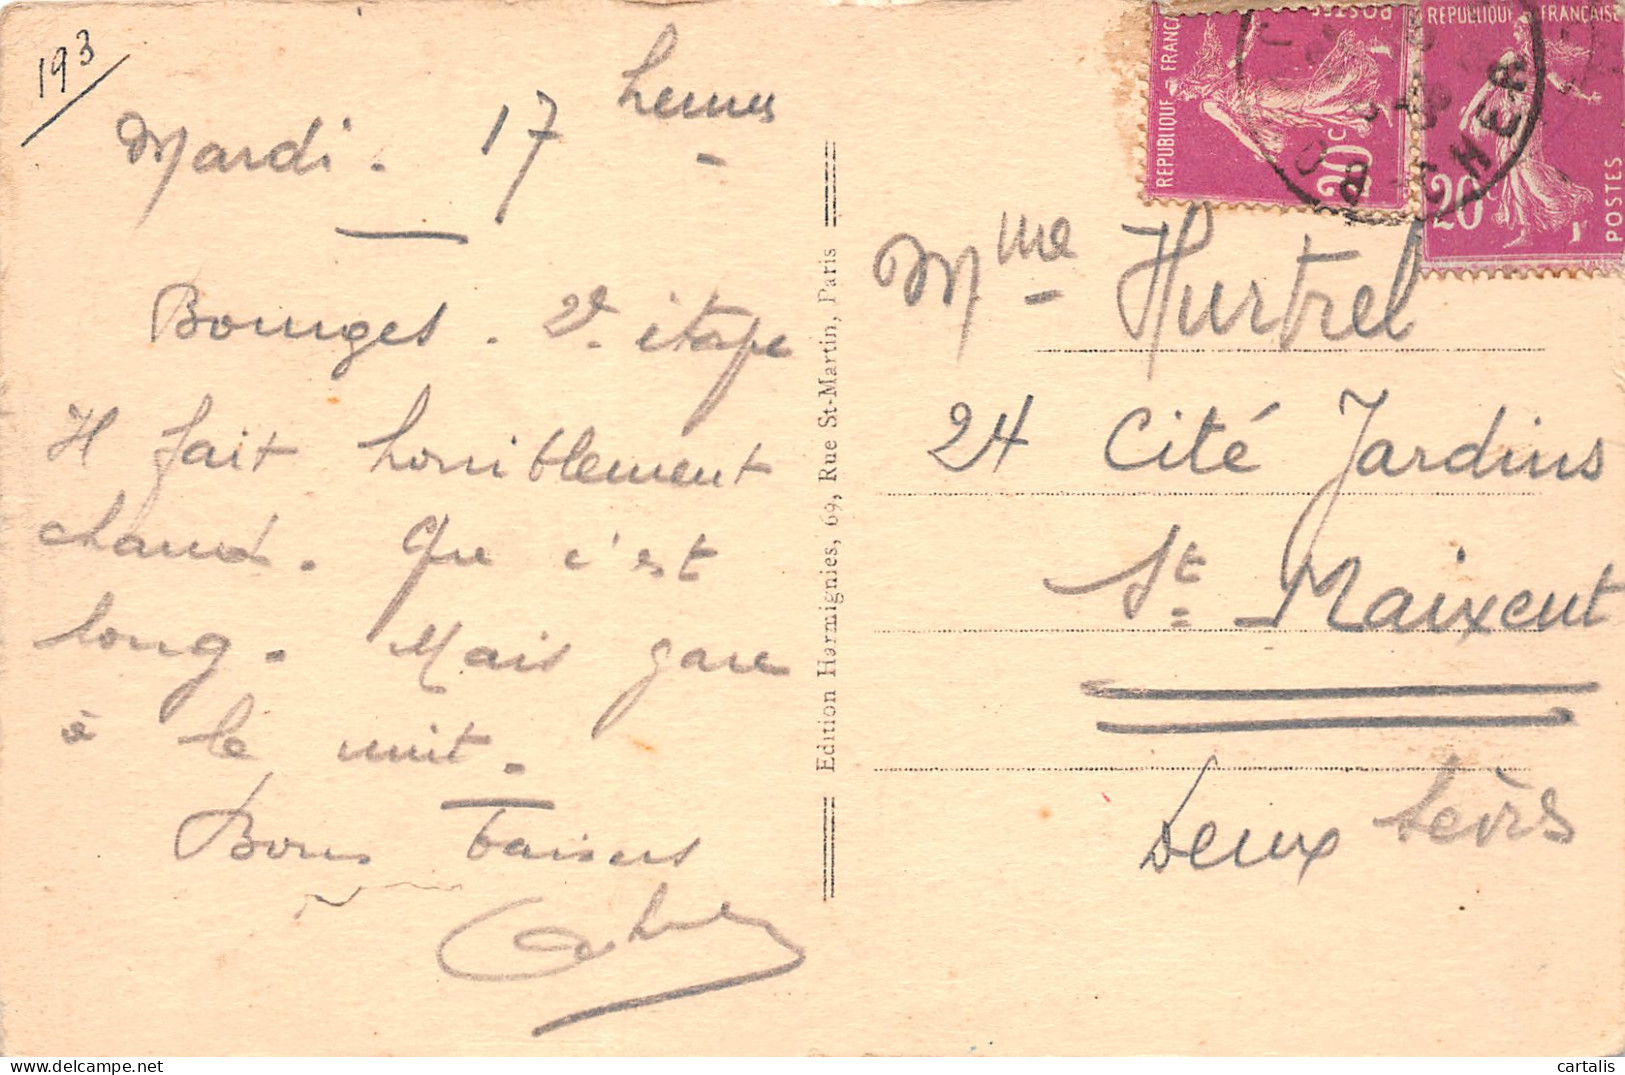 193
Mardi. 17 heures
Bourges. 2e. étape
Il fait horriblement
chaud. Que c'est
long. Mais gare
à la nuit.
Bons baisers
Edition Hermignies, 69, Rue St-Martin, Paris
REPUBLIQUE FRANÇAISE
POSTES
20c
REPUBLIQUE FRANÇAISE
20c
POSTES
Mme Hurtrel
24 Cité Jardins
St Maixent
Deux Sèvres
cartalis